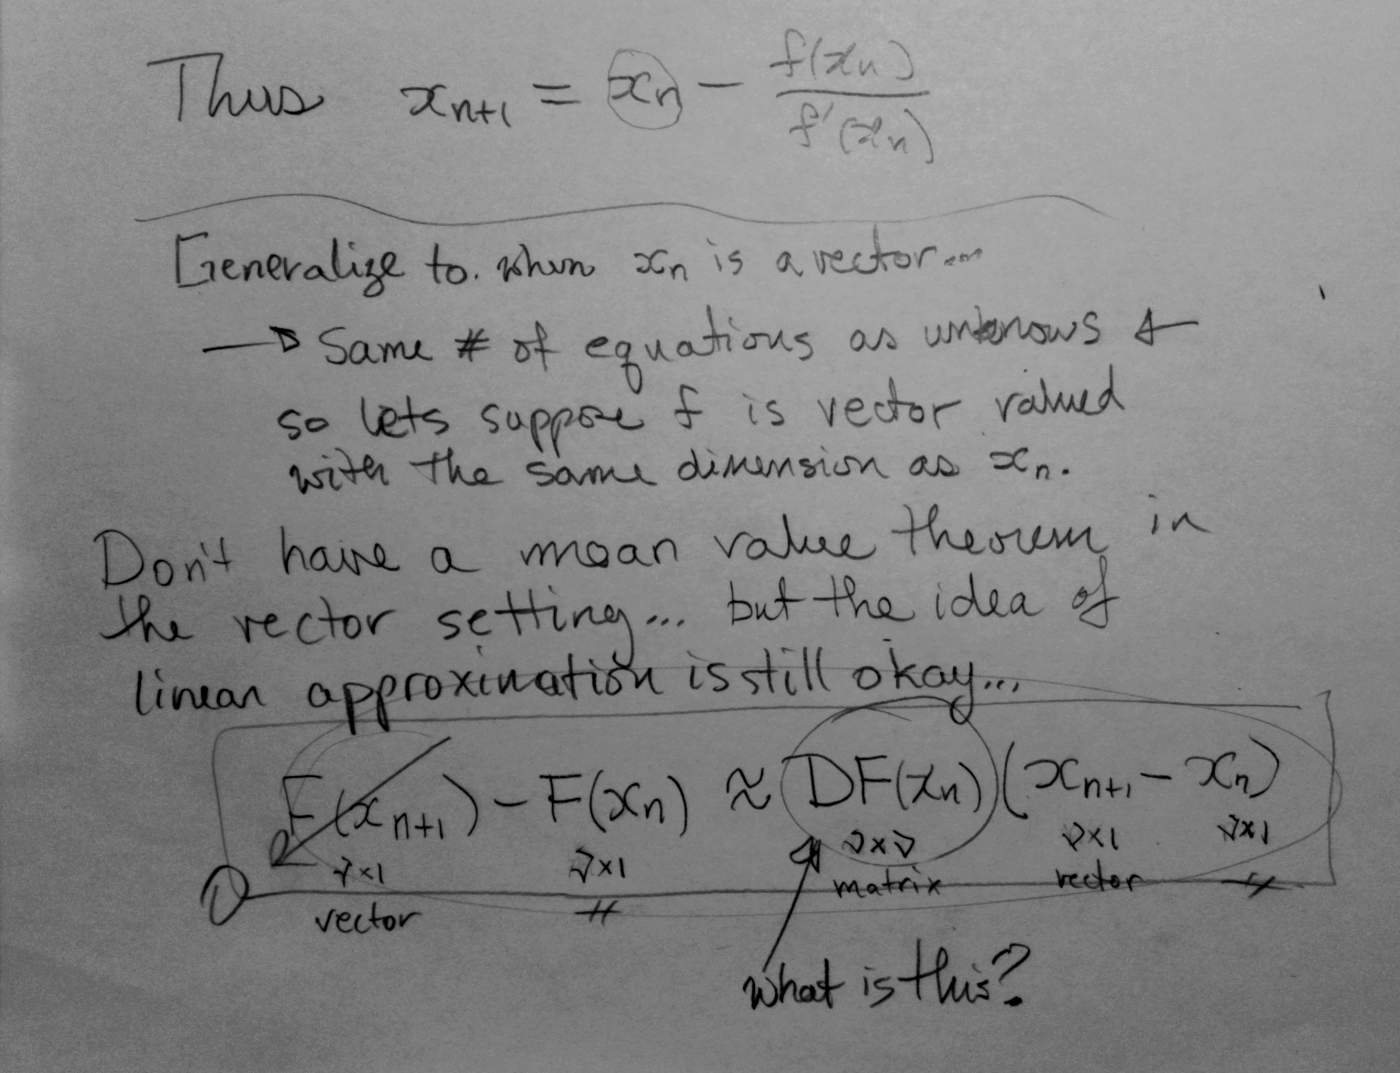 Thus x_{n+1} = x_n - f(x_n) / f'(x_n)
Generalize to. when x_n is a vector...
→ Same # of equations as unknows ←
so lets suppose f is vector valued
with the same dimension as x_n.
Don't have a mean value theorem in
the vector setting... but the idea of
linear approximation is still okay...
F(x_{n+1}) - F(x_n) ≈ DF(x_n) (x_{n+1} - x_n)
7×1 7×1 7×7 7×1 7×1
0 matrix vector
vector
what is this?